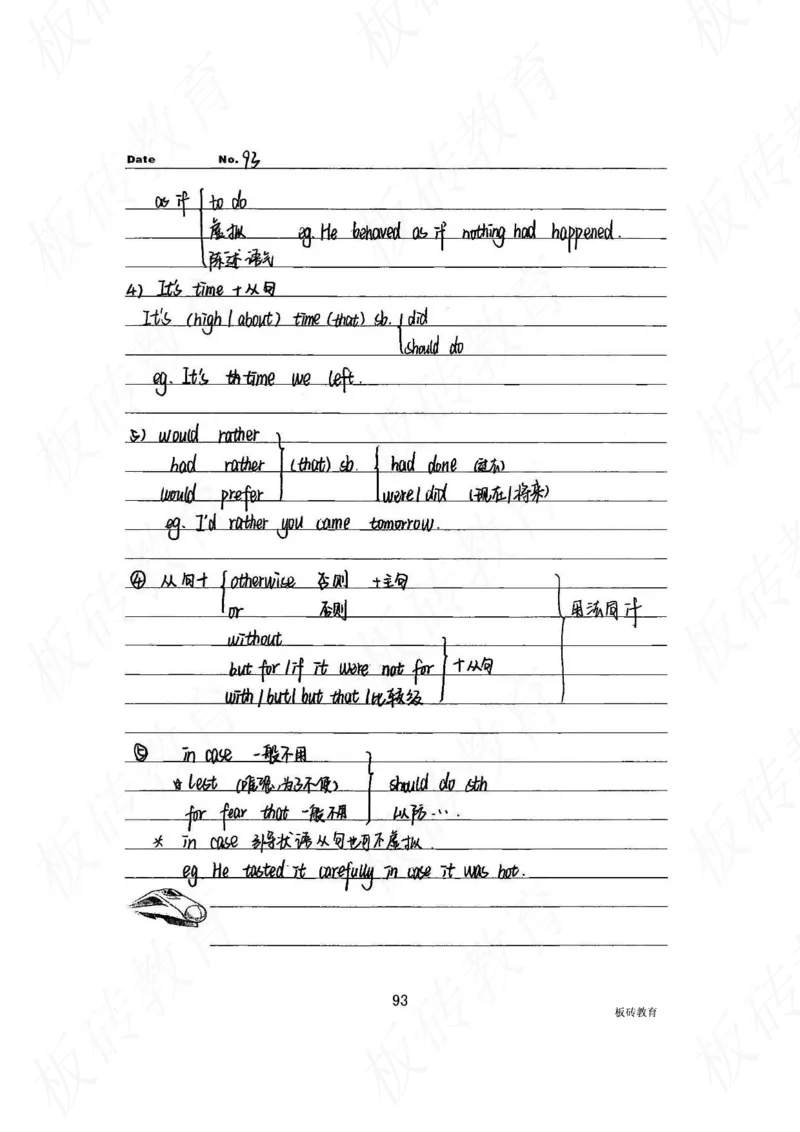 Date No. 93
as if { to do
虚拟 eg. He behaved as if nothing had happened.
陈述语气
4) It's time + 从句
It's (high / about) time (that) sb. { did
should do
eg. It's time we left.
5) would rather
had rather } (that) sb. { had done (过去)
would prefer were / did (现在 / 将来)
eg. I'd rather you came tomorrow.
④ 从句 + { otherwise 否则 + 主句
or 否则 } 用法同 if
without
but for / if it were not for } + 从句
with / but / but that / 比较级
⑤ in case 一般不用
* lest (唯恐,为了不使) } should do sth
for fear that 一般不用 以防...
* in case 引导状语从句也可不虚拟.
eg. He tasted it carefully in case it was hot.
93
板砖教育